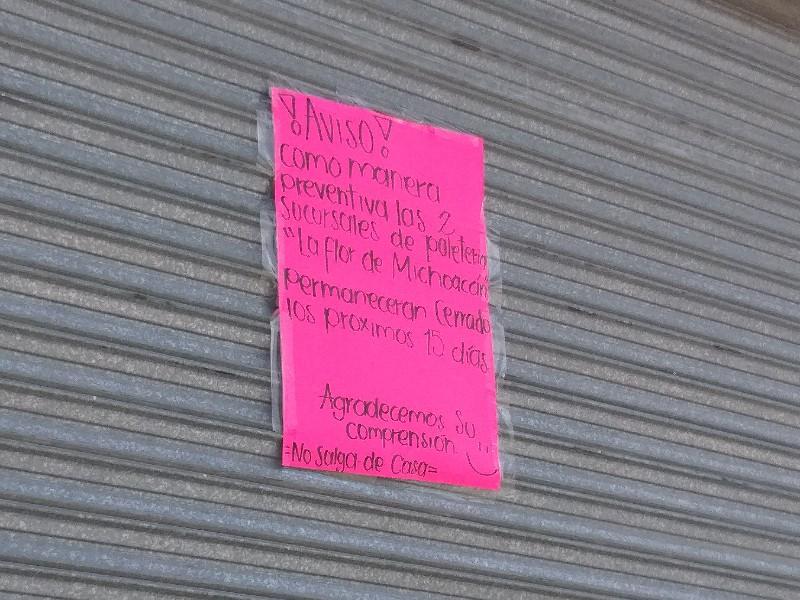 ¡AVISO!
como manera
preventiva las 2
sucursales de paleteria
"La flor de Michoacán"
permaneceran Cerrado
los proximos 15 días.
Agradecemos su
comprensión...
=No salga de Casa=